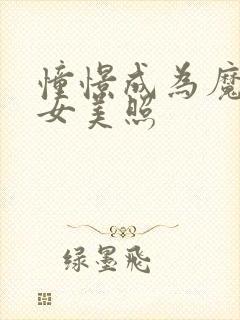 憧憬成為魔
女美照
绿墨飛